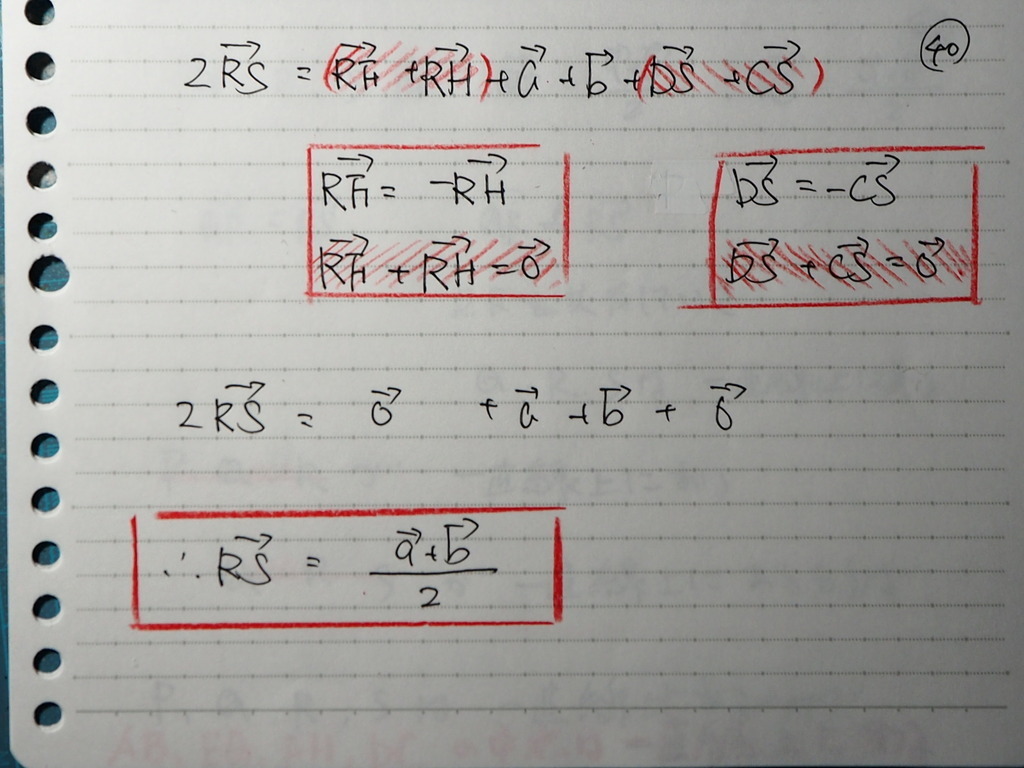 ㊵
2RS⃗ = (RE⃗ + RH⃗) + a⃗ + b⃗ + (DS⃗ + CS⃗)
RE⃗ = -RH⃗
RE⃗ + RH⃗ = 0⃗
DS⃗ = -CS⃗
DS⃗ + CS⃗ = 0⃗
2RS⃗ = 0⃗ + a⃗ + b⃗ + 0⃗
∴ RS⃗ = (a⃗ + b⃗)/2